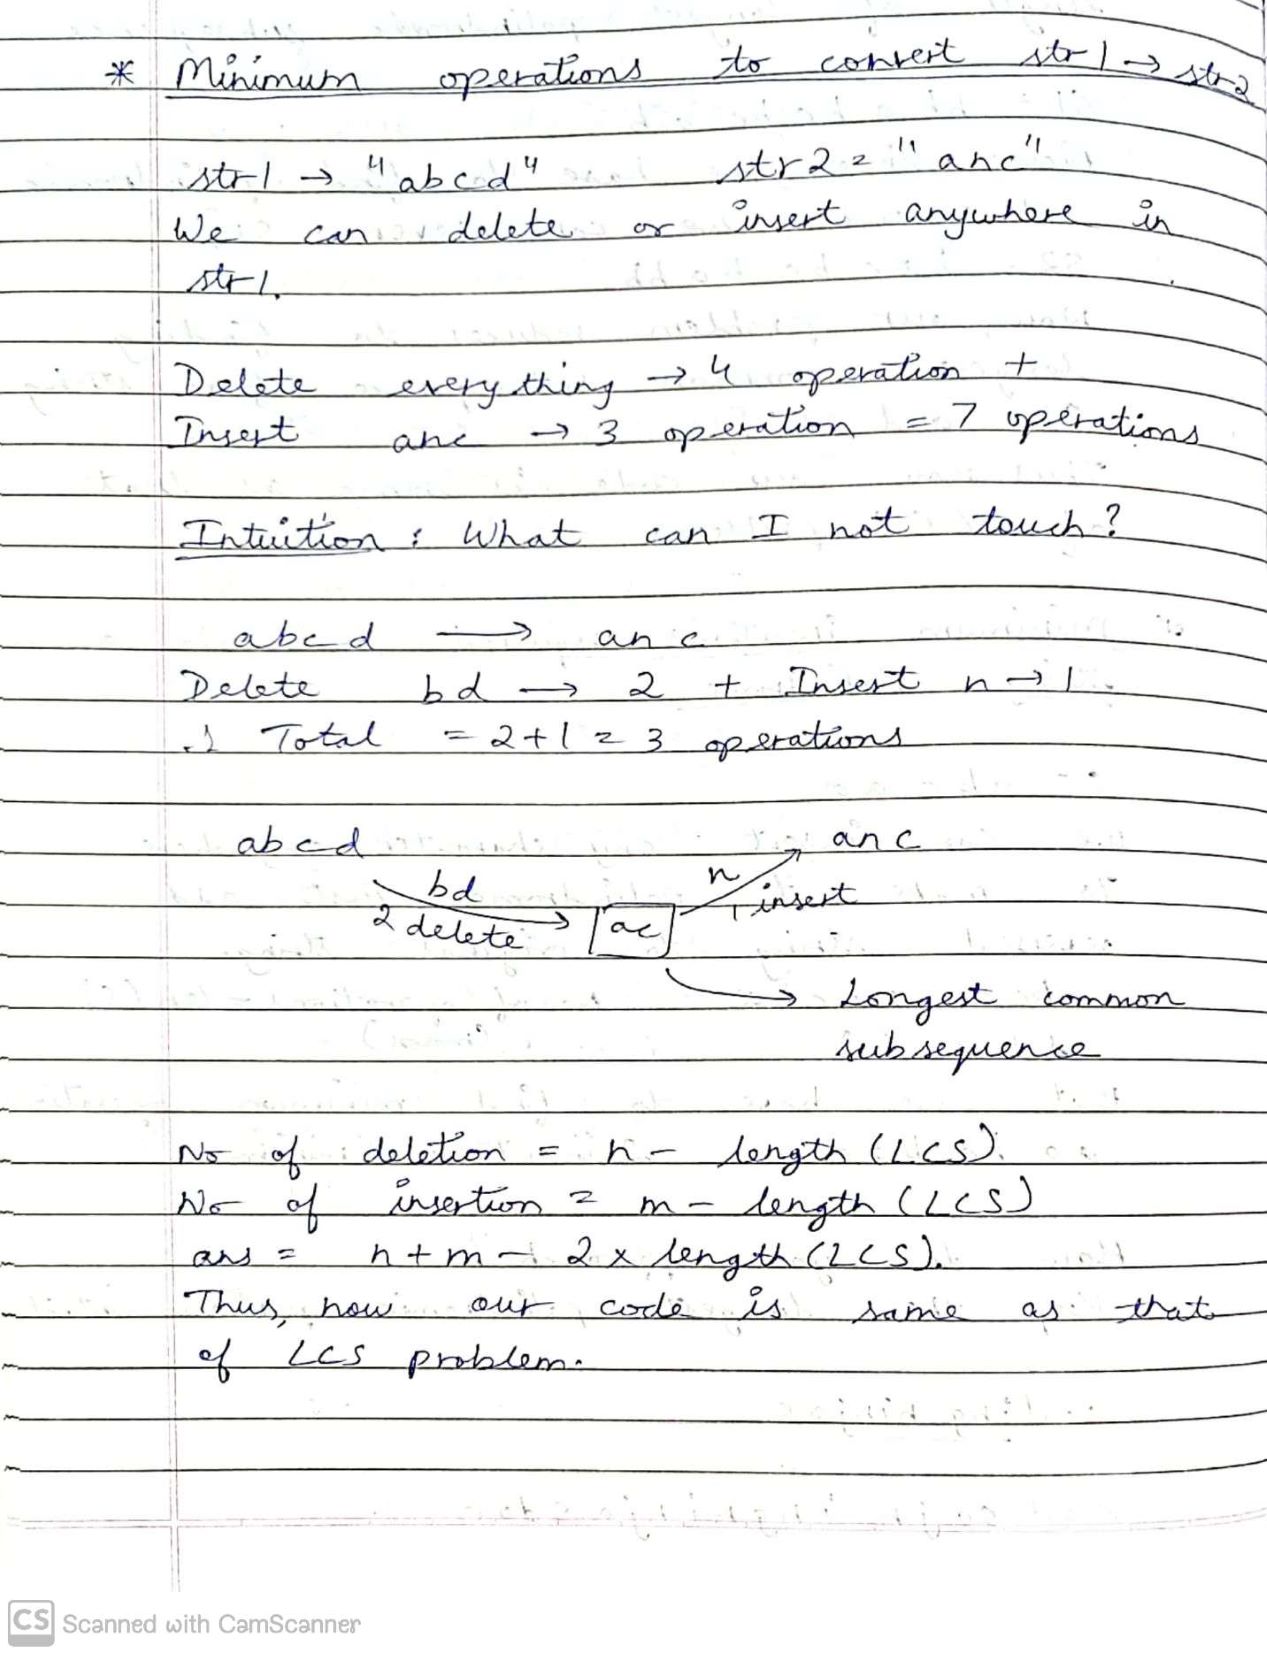 * Minimum operations to convert str1 → str2
str1 → "abcd" str2 = "anc"
We can delete or insert anywhere in
str1.
Delete everything → 4 operation +
Insert anc → 3 operation = 7 operations
Intuition : What can I not touch?
abcd → anc
Delete bd → 2 + Insert n → 1
∴ Total = 2+1 = 3 operations
abcd anc
bd n
2 delete ac 1 insert
Longest common
subsequence
No of deletion = n - length (LCS).
No of insertion = m - length (LCS)
ans = n + m - 2 x length (LCS).
Thus, now our code is same as that
of LCS problem.
CS Scanned with CamScanner